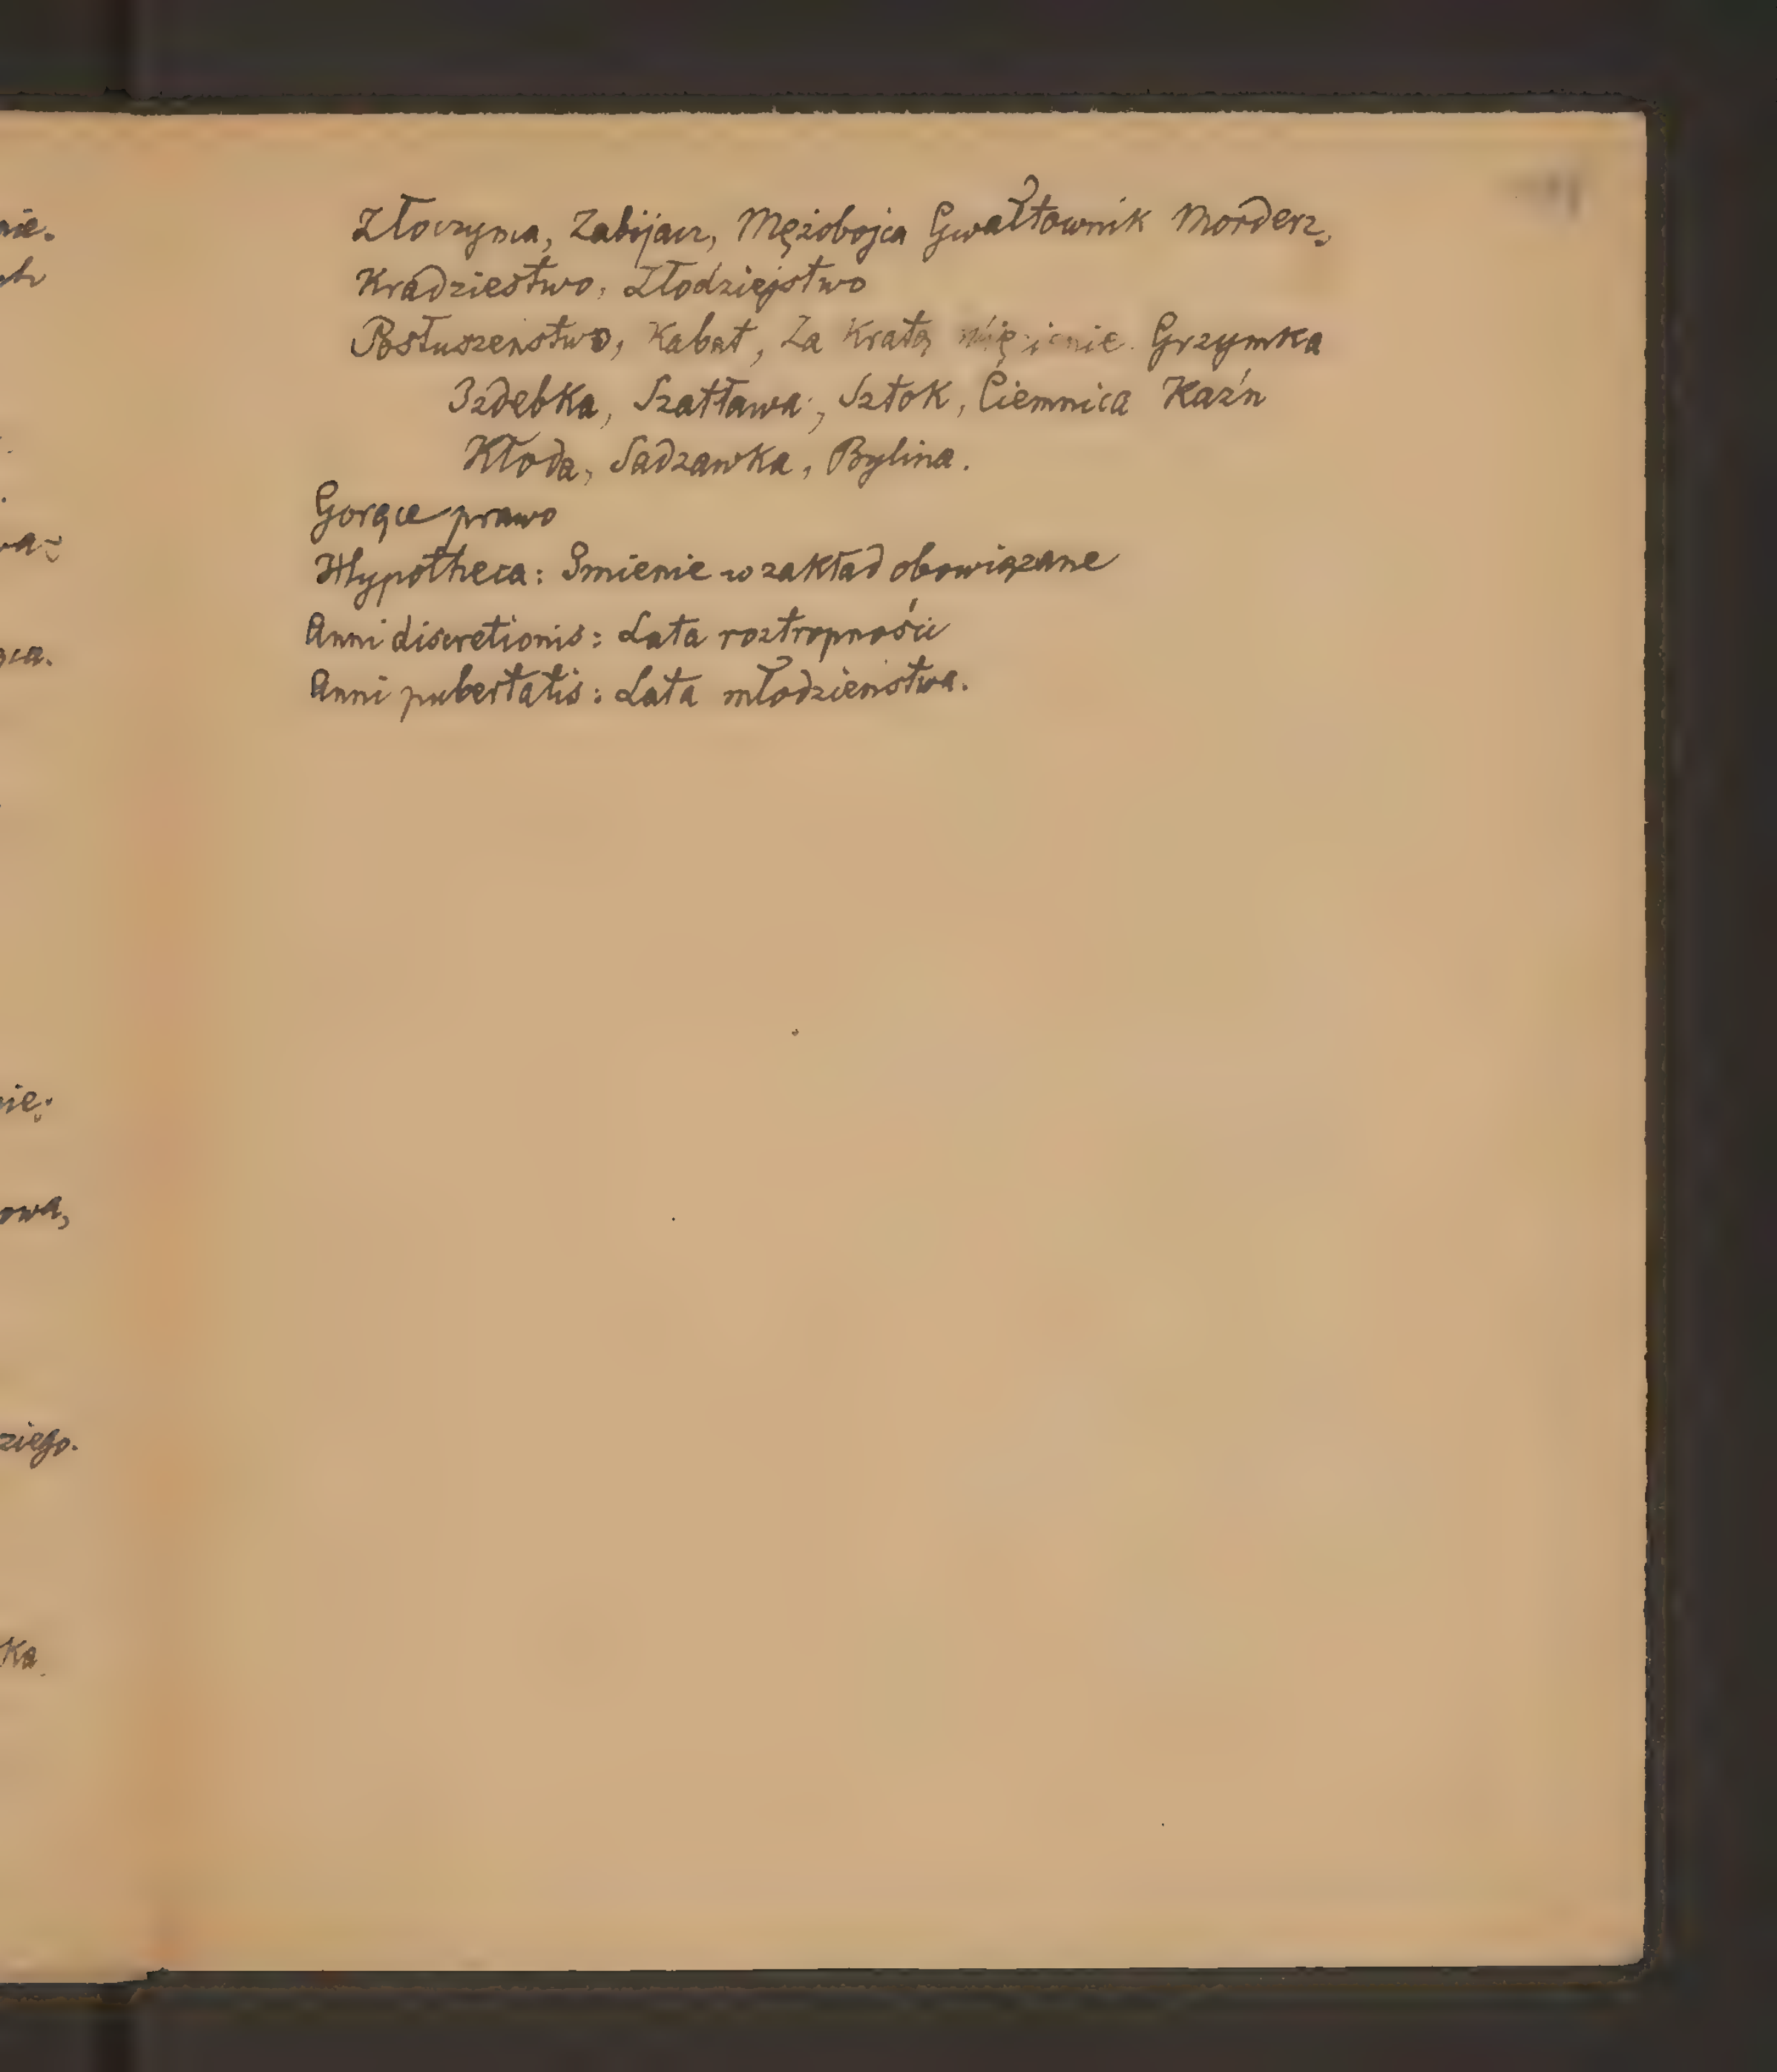 Złoczyńca, Zabijacz, Mężobojca Gwałtownik Morderz,
Kradziestwo, Złodziejstwo
Posłuszeństwo, Kabat, Za Kratą Więzienie. Grzymka
Izdebka, Szatława, Sztok, Ciemnica Kaźń
Kłoda, Sadzawka, Bylina.
Gorące prawo
Hypotheca: Imienie w zakład obowiązane
Anni discretionis: Lata roztropności
Anni pubertatis: Lata młodzieństwa.